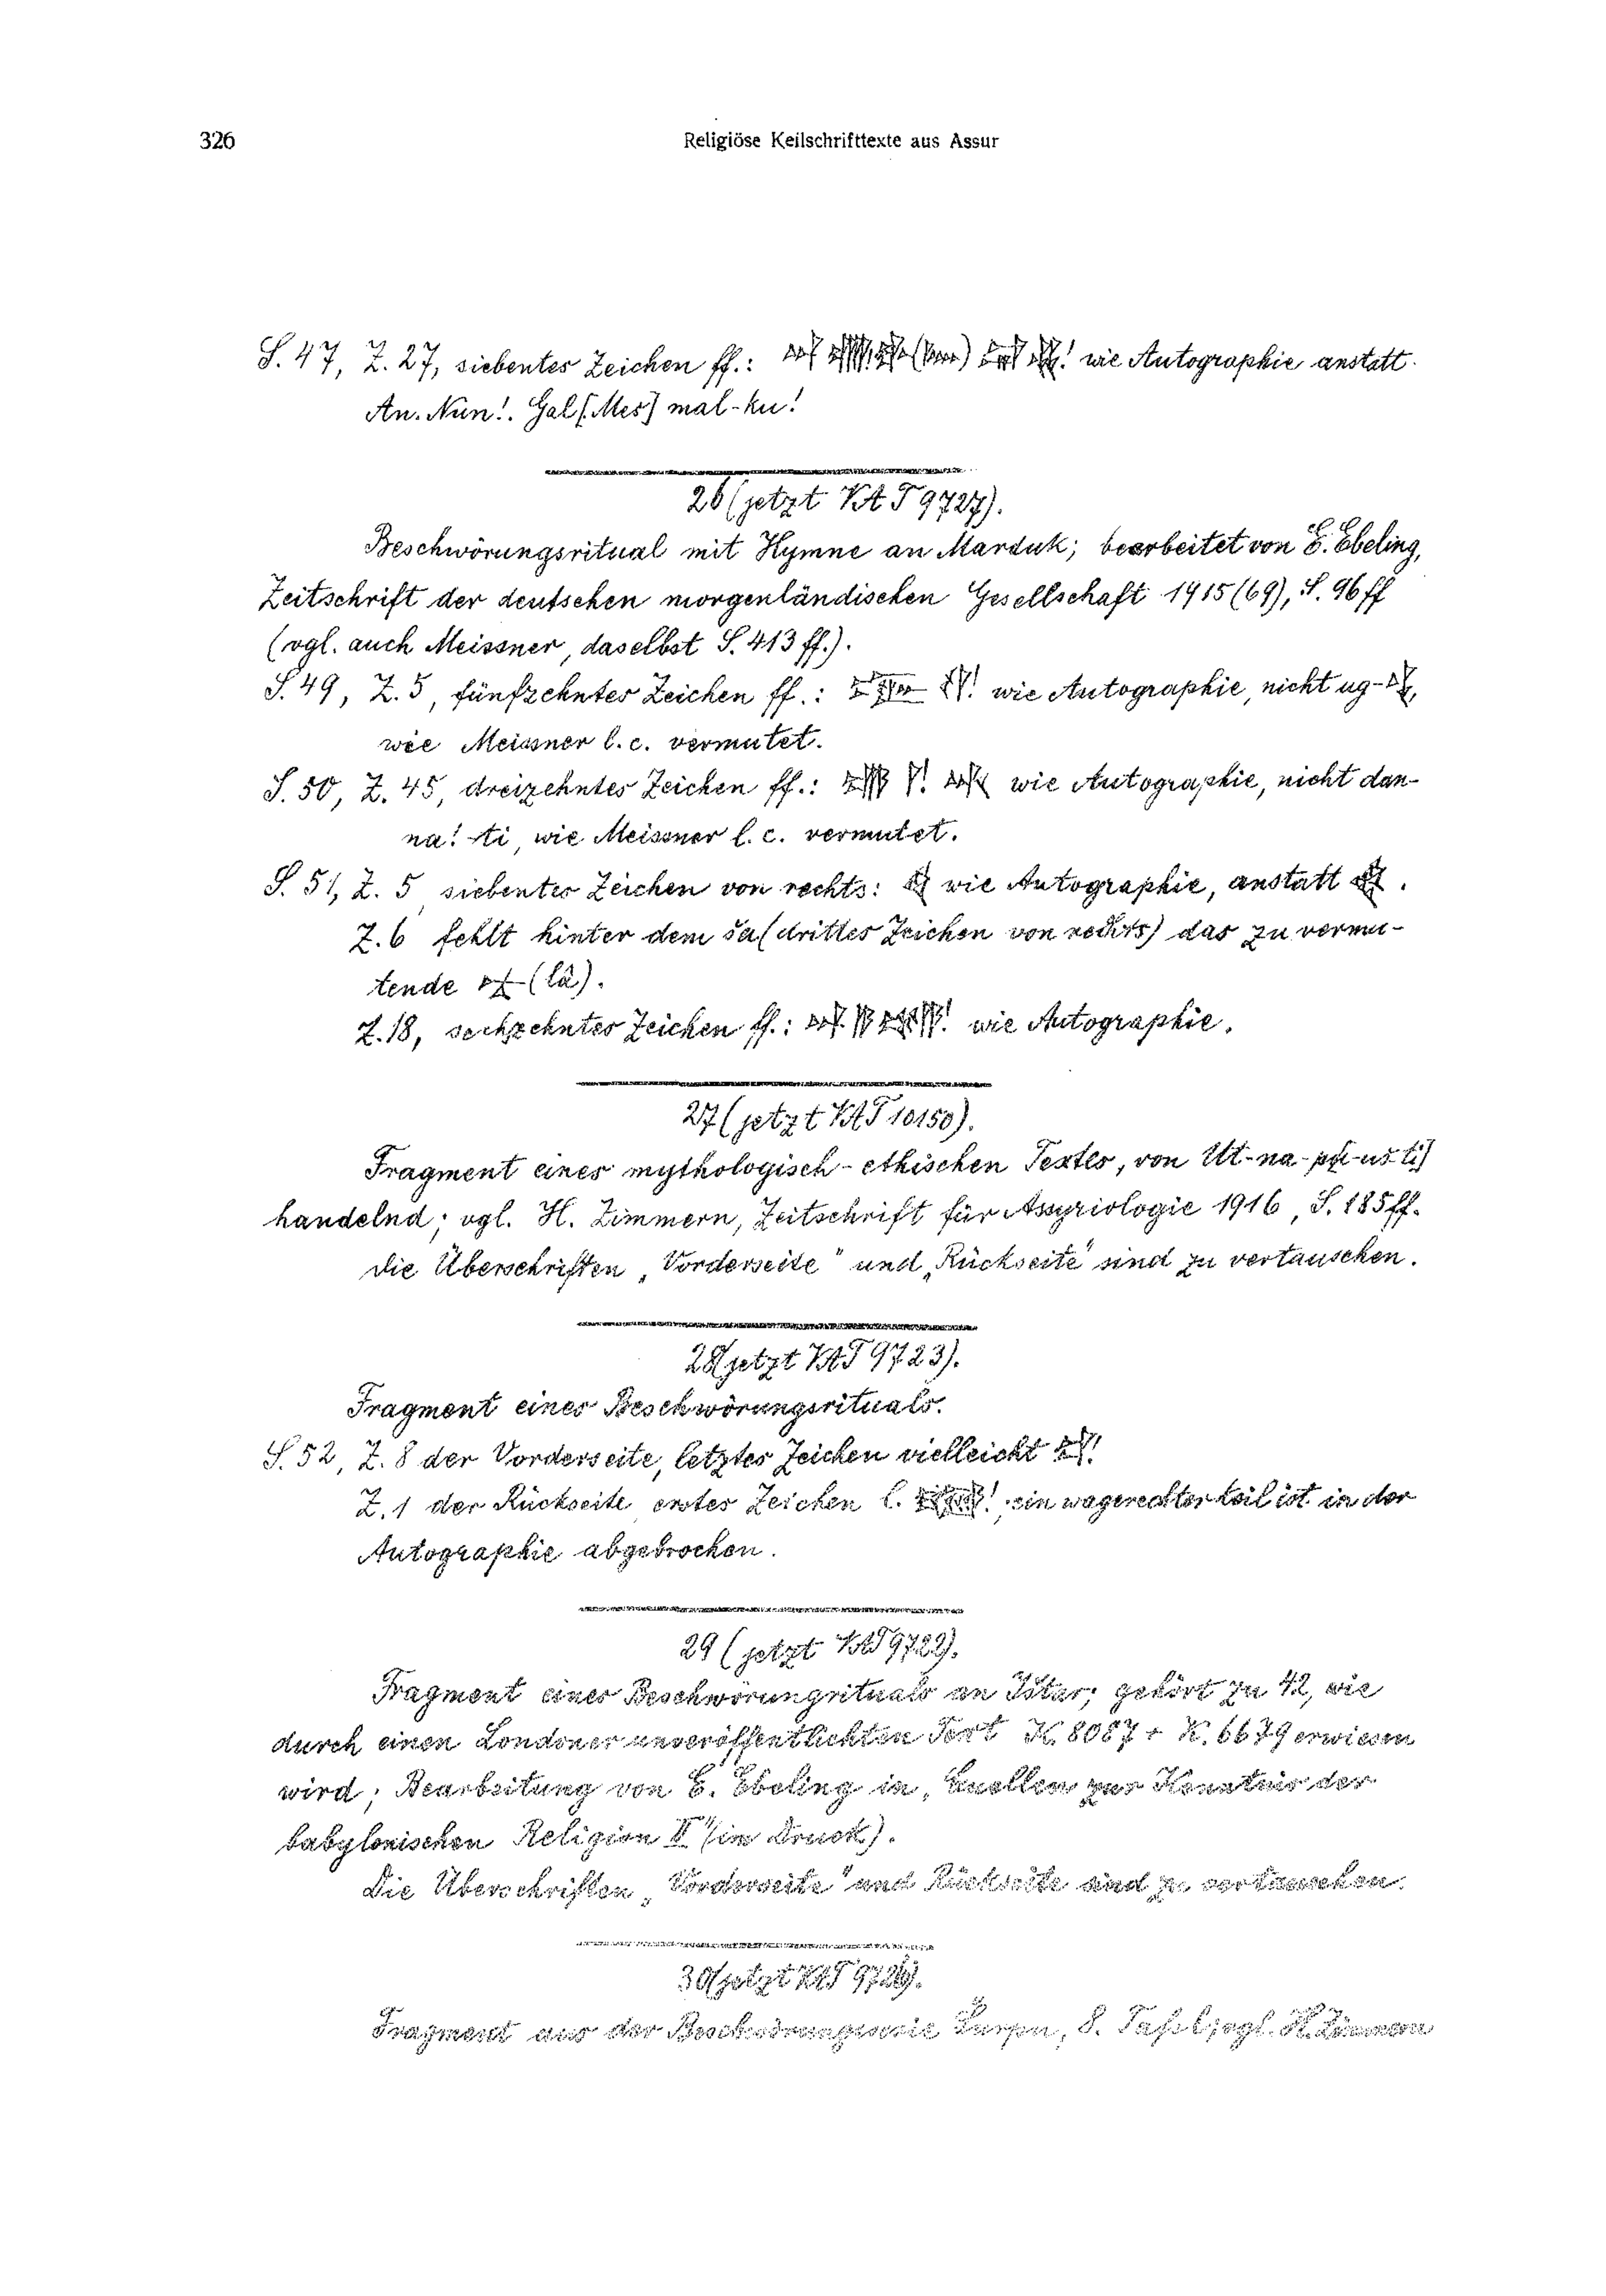 326
Religiöse Keilschrifttexte aus Assur
S. 47, Z. 27, siebentes Zeichen ff.: wie Autographie anstatt
An. Nun!. Gal [Mes] mal-ku!
26 (jetzt VAT 9727).
Beschwörungsritual mit Hymne an Marduk; bearbeitet von E. Ebeling,
Zeitschrift der deutschen morgenländischen Gesellschaft 1915 (69), S. 96 ff
(vgl. auch Meissner, daselbst S. 413 ff.).
S. 49, Z. 5, fünfzehntes Zeichen ff.: wie Autographie, nicht ug-
wie Meissner l. c. vermutet.
S. 50, Z. 45, dreizehntes Zeichen ff.: wie Autographie, nicht dan-
na!-ti, wie Meissner l. c. vermutet.
S. 51, Z. 5 siebentes Zeichen von rechts: wie Autographie, anstatt .
Z. 6 fehlt hinter dem ša (drittes Zeichen von rechts) das zu vermu-
tende (lâ).
Z. 18, sechzehntes Zeichen ff.: wie Autographie.
27 (jetzt VAT 10150).
Fragment eines mythologisch-ethischen Textes, von Ut-na-pu-uš-ti]
handelnd; vgl. H. Zimmern, Zeitschrift für Assyriologie 1916, S. 185 ff.
die Überschriften „Vorderseite" und „Rückseite" sind zu vertauschen.
28 (jetzt VAT 9723).
Fragment eines Beschwörungsrituals.
S. 52, Z. 8 der Vorderseite, letztes Zeichen vielleicht
Z. 1 der Rückseite erstes Zeichen l. ; ein wagerechter Keil ist in der
Autographie abgebrochen.
29 (jetzt VAT 9729).
Fragment eines Beschwörungrituals an Ištar; gehört zu 42, wie
durch einen Londoner unveröffentlichten Text K. 8087 + K. 6679 erwiesen
wird; Bearbeitung von E. Ebeling in „Quellen zur Kenntnis der
babylonischen Religion II" (im Druck).
Die Überschriften „Vorderseite" und Rückseite sind zu vertauschen.
30 (jetzt VAT
Fragment aus der Beschwörungsserie Šurpu, 8. Tafel; vgl. H. Zimmern